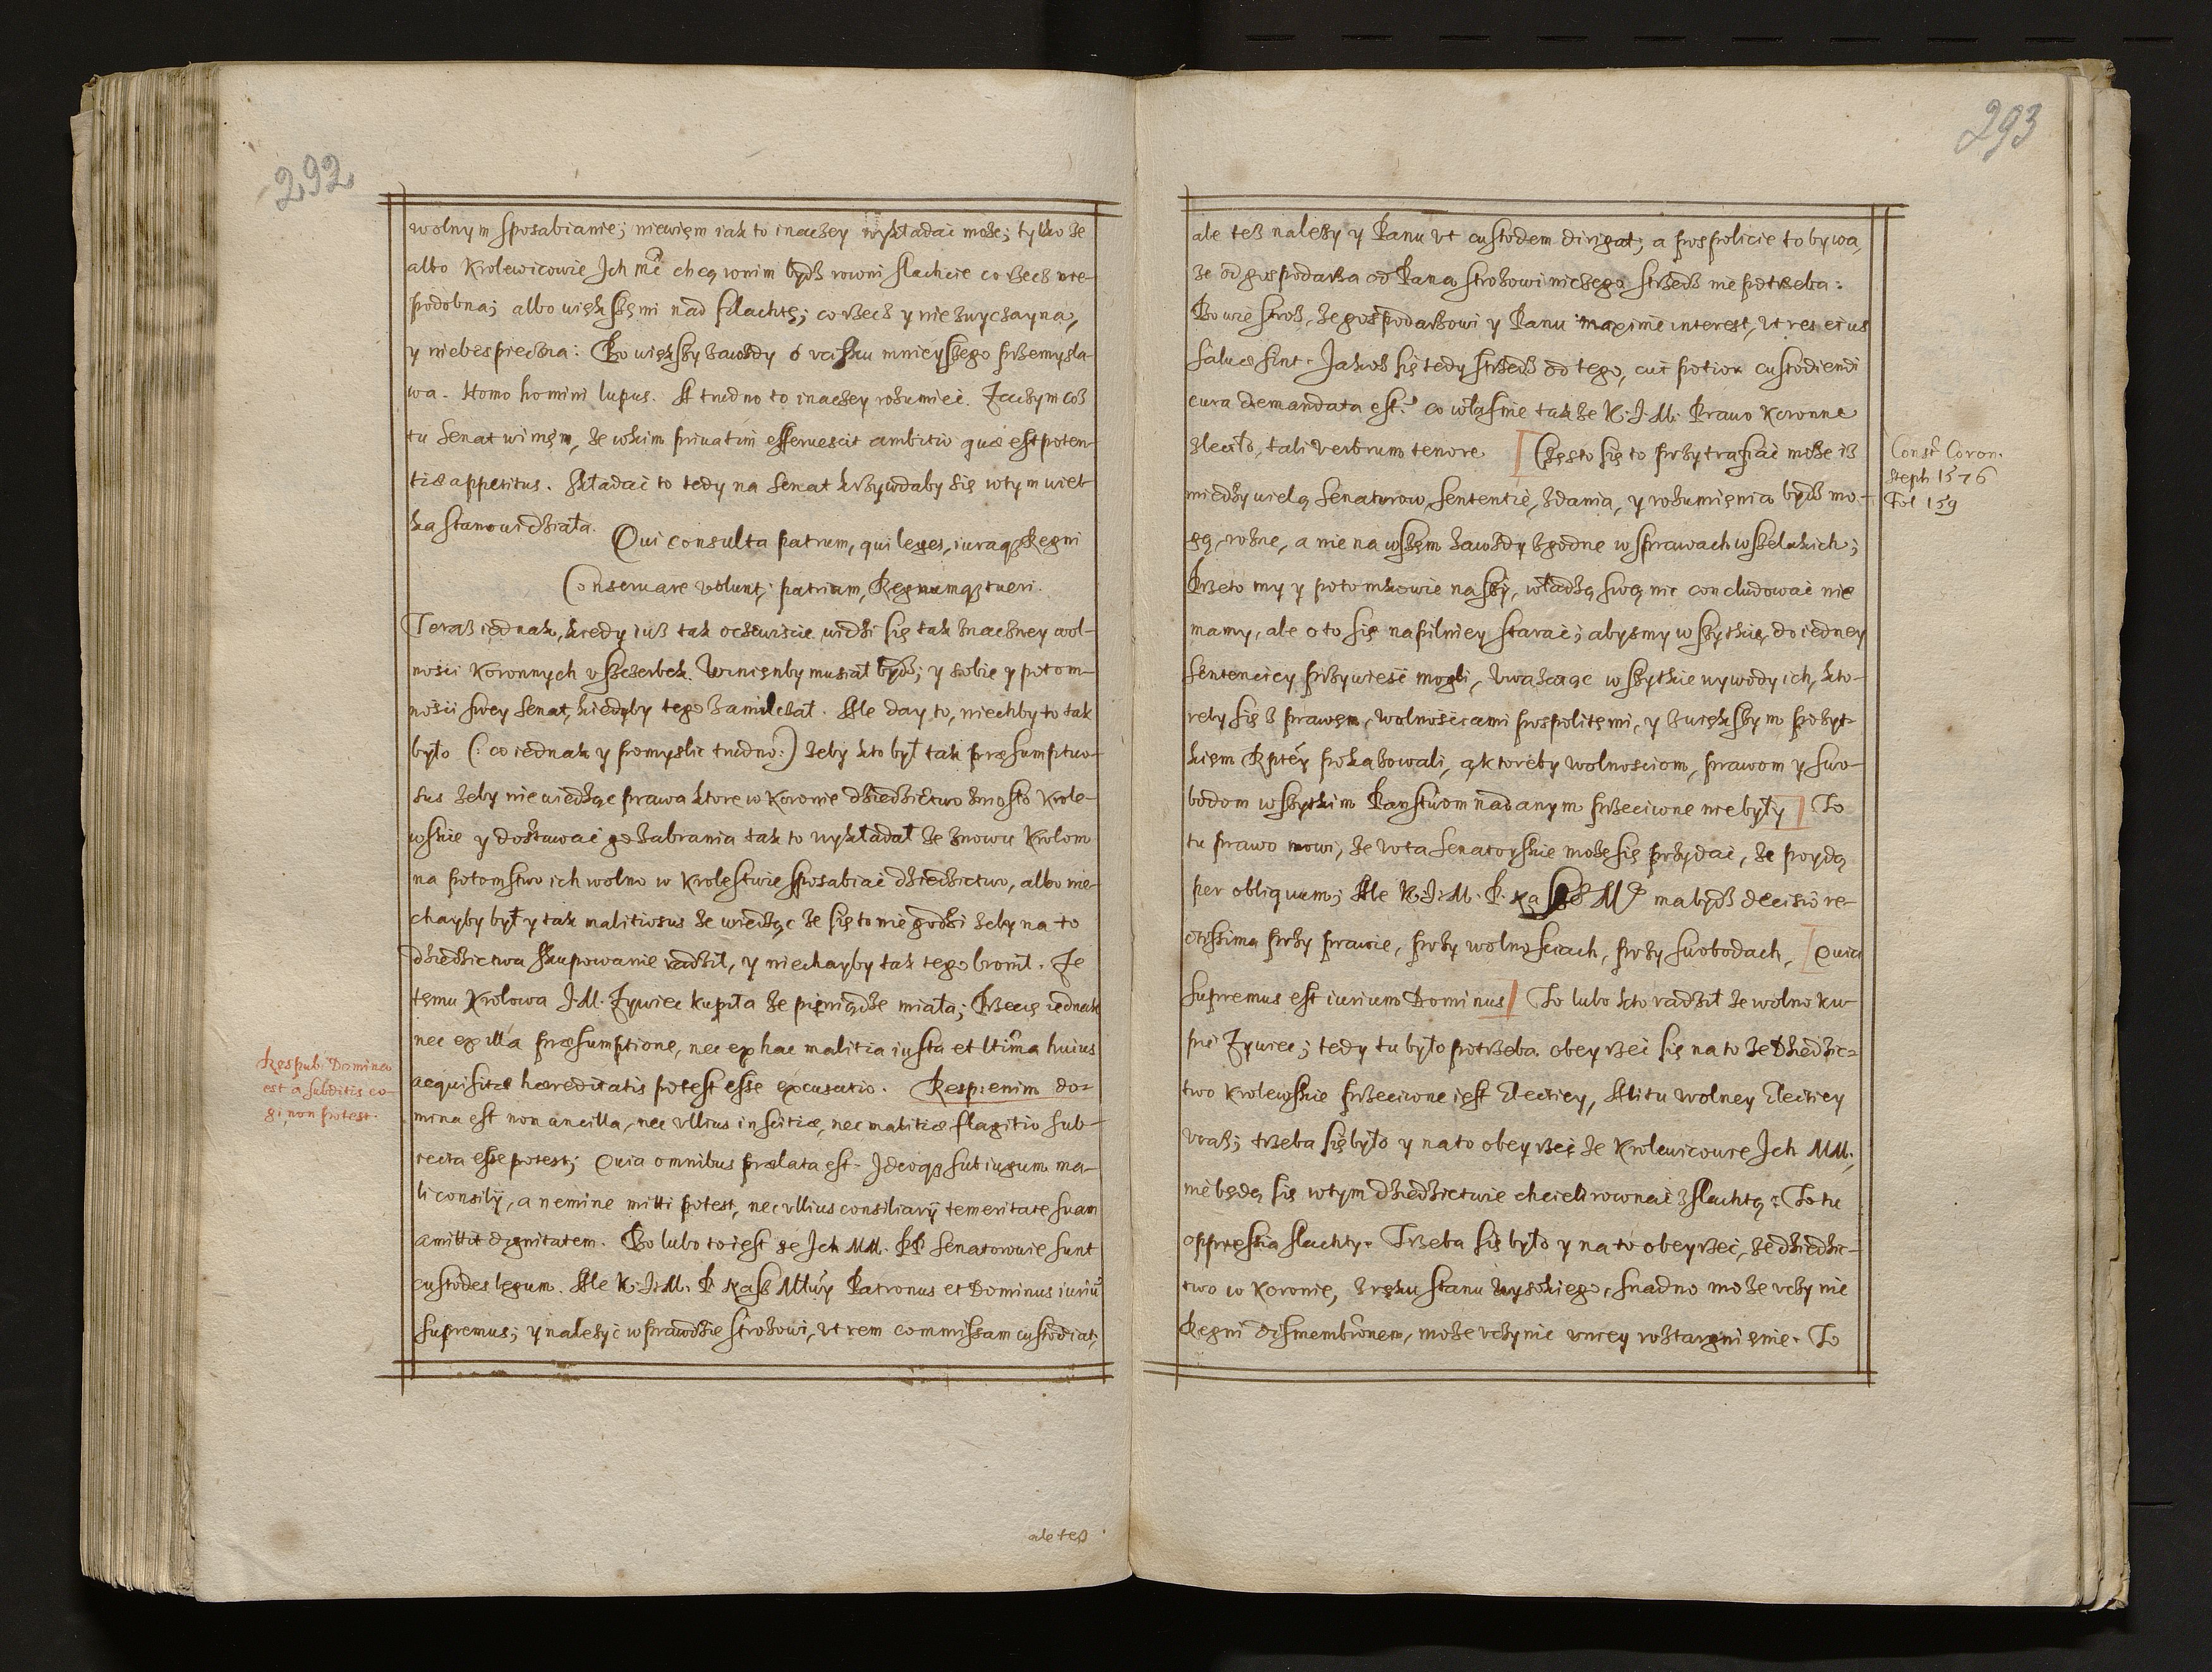 292
wolnym sposabianie; niewiem iak to inaczey wykładać może; tylko że
albo Krolewicowie Ich Mć chcą wnim bydź rowni slachcie co rzecz nie-
podobna; albo większęmi nad slachtę; co rzecz y niezwyczayna,
y niebespieczna: Bo większy zawżdy o vcisku mnieyszego przemyśla-
wa. Homo homini lupus. A trudno to inaczey rozumieć. Zaczym coż
tu Senat winięn, że wkim priuatim efferuescit ambitio quæ est poten-
tiæ appetitus. Składać to tedy na Senat krzywdaby się wtym wiel-
ka stanowi działa.
Qui consulta patrum, qui leges, iuraq3 Regni
Conseruare volunt; patriam, Regnumq3 tueri.
Teraz iednak, kiedy iuż tak oczewiście widzi się tak znaczney wol-
ności Koronnych vszczerbek. Winięnby musiał bydź; y sobie y potom-
ności swey Senat, kiedyby tego zamilczał. Ale day to, niechby to tak
było (: co iednak y pomyslić trudno:) żeby kto był tak præsumptuo-
sus żeby nie wiedząc prawa ktore w Koronie dziedzictwo zniosło Krole-
wskie y dostawać go zabrania tak to wykładał że znowu Krolom
na potomstwo ich wolno w Krolestwie sposabiać dziedzictwo, albo nie-
chayby był y tak malitiosus że wiedząc że się to nie godzi żeby na to
dziedzictwa skupowanie radził, y niechayby tak tego bronił. Że
temu Krolowa J.M. Zywiec kupiła że pięniądze miała; Przecię iednak
nec ex illa præsumptione, nec ex hac malitia iusta et ltĩma huius
acquisitæ hæreditatis potest esse excusatio. Resp: enim do-
mina est non ancilla, nec vllius inscitiæ, nec malitiæ flagitio sub-
iecta esse potest; Quia omnibus prælata est. Ideoq3 sub iugum ma-
li consilij, a nemine mitti potest, nec vllius consiliarij temeritate suam
amittit dignitatem. Bo lubo to iest że Ich MM. PP Senatorowie sunt
custodes legum. Ale K.J.M. P. nasz Młwy Patronus et Dominus iuriũ
supremus; y należyć wprawdzie strożowi, vt rem commissam custodiat,
Respub: Domina
est a subditis co-
gi non potest.
ale też
293
ale też należy y Panu vt custodem dirigat; a pospolicie to bywa,
że od gospodarza od Pana strożowi niczego strzedz nie potrzeba.
Bo wie stroż, że gospodarzowi y Panu maxime interest, vt res eius
saluæ sint. Jakoż się tedy strzedz od tego, cui potior custodiendi
cura demandata est? co własnie także K.J.M. Prawo Koronne
zleciło, tali verborum tenore [Często się to przytrafiać może iż
miedzy wielą Senatorow, Sententie, zdania, y rozumięnia bydź mo-
gą, rożne, a nie na wszęm zawżdy zgodne w sprawach wszelakich;
Przeto my y potomkowie naszy, władzą swą nic concludować nie
mamy, ale o to się napilniey starać; abysmy wszytkię do iedney
sententiey przywieść mogli, vważaiąc wszytkie wywody ich, kto-
reby się z prawęm, wolnościami pospolitemi, y z większym pożyt-
kięm Rptéy pokazowali, a ktoreby wolnosciom, prawom y swo-
bodom wszytkim Panstwom nadanym przeciwne nie były] To
tu prawo mowi, że vota Senatorskie może się przydać, że poydą
per obliquum; Ale K.J.M. P. nasz Mł. ma bydź decisio re-
ctissima przy prawie, przy wolnosciach, przy swobodach, [Quia
supremus est iurium Dominus] To lubo kto radził że wolno ku-
pić Zywiec; tedy tu było potrzeba obeyrzeć się na to że Dziedzic-
two Krolewskie przeciwne iest Electiey, Ali tu wolney Electiey
vraz; trzeba się było y na to obeyrzeć że Krolewicowie Ich MM.,
nie będą się wtym dziedzictwie chcieli rownać z slachtą: To tu
oppressia slachty. Trzeba się było y na to obeyrzeć, że dziedzic-
two w Koronie, z ręku stanu wysokiego, snadno może vczynić
Regni dismembrõnem, może vczynić w niey roztargnięnie. To
Constˢ Coron.
Steph 1576
Fol 159